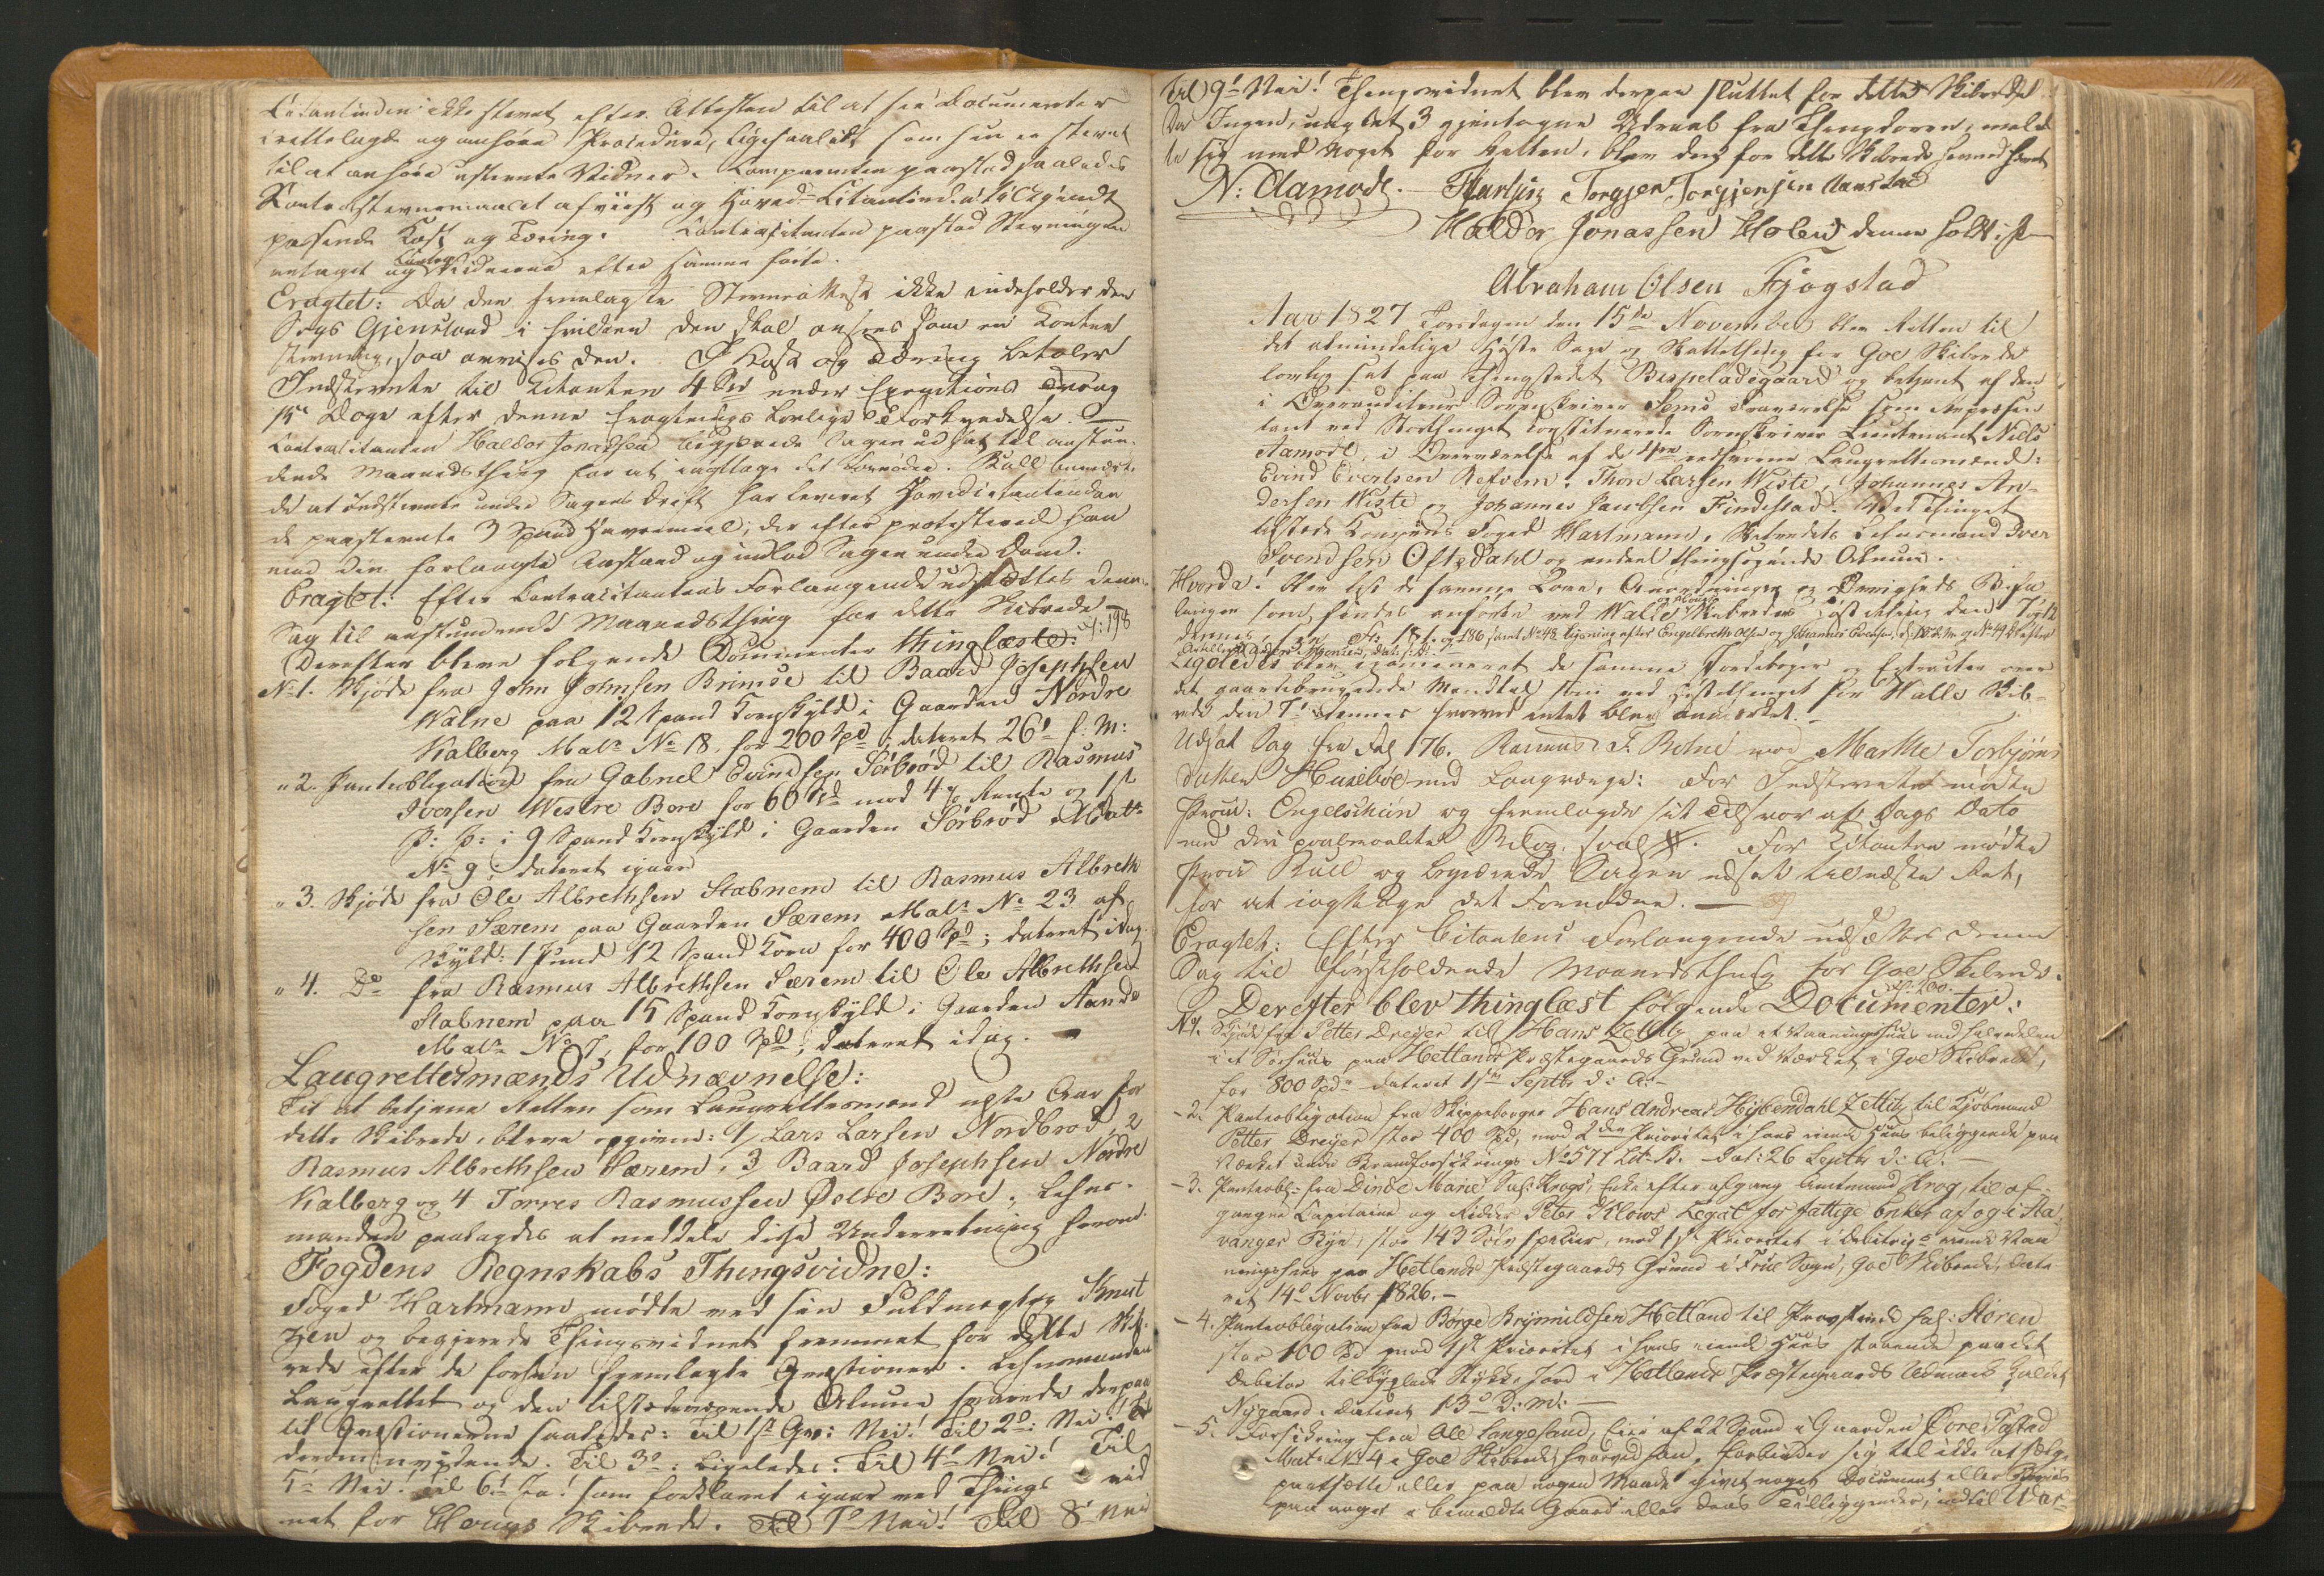 Citantinden ikke stevnet efter Attesten til at see Documenter
irettelagt og anhøre Procedure, ligesaalidt som hun er stevnet
til at anhøre ustevnte Vidner. Comparenten paastod saaledes
Kontrastevnemaalet afviist og Hoved-Citantinden tilkjendt
passende Kost og Tæring. Contracitanten paastod Stevningen
antaget og Vidnerne efter samme førte.
Eragtet: Da den fremlagte Stevneattest ikke indeholder den
Sags Gjenstand i hvilken den skal ansees som en Contra
stevning, saa avvises den. I Kost og Tæring betaler
Indstevnte til Citanten 4 Spd under Executions Tvang
15 Dage efter denne Eragtnings lovlige Forkyndelse. —
Contracitanten Haldor Jonassen begjærede Sagen udsat til anstun-
dende Maanedsthing for at iagttage det Fornødne. Bull bemærke-
de at Indstevnte under Sagens Drift har leveret Hovedcitantinden
de paastevnte 3 Spand Havremeel; derefter protesterede han
mod den forlangte Anstand og indlod Sagen under Dom.
Eragtet: Efter Contracitantens Forlangende udsættes denne
Sag til anstundende Maanedsthing for dette Skibrede —
Derefter bleve følgende Documenter thinglæste: f: 198
No 1. Skjøde fra John Johnsen Brimse til Baard Josephsen
Walne paa 12 Spand Kornskyld i Gaarden Nordre
Kalberg Matr. No 18, for 200 Spd; dateret 26d f: M:
" 2. Panteobligation fra Gabriel Evindsen Sørbrød til Rasmus
Iversen Westre Bore for 60 Spd mod 4 % Rente og 1st
P: P: i 9 Spand Kornskyld i Gaarden Sørbrød Matr.
No 9; dateret igaar
" 3. Skjøde fra Ole Albrethsen Stabnem til Rasmus Albreth
sen Særem paa Gaarden Særem Matr. No 23 af
Skyld: 1 Pund 12 Spand Korn for 400 Spd; dateret idag.
" 4. Do fra Rasmus Albrethsen Særem til Ole Albrethsen
Stabnem paa 15 Spand Kornskyld i Gaarden Aande
Matr. No 7, for 100 Spd; dateret idag. —
Laugrettesmænds Udnævnelse:
Til at betjene Retten som Laugrettesmænd neste Aar for
dette Skibrede, bleve opgivne: 1, Lars Larsen Nordbrød, 2
Rasmus Albrethsen Særem, 3, Baard Josephsen Nordre
Kalberg og 4 Torres Rasmussen Østre Bore; Lehns-
manden paalagdes at meddele disse Underretning herom.
Fogdens Regnskabs Thingsvidne:
Foged Hartmann mødte ved sin Fuldmægtig Knut
zen og begjerede Thingsvidnet fremmet for dette Skib-
rede efter de forhen fremlagte Qvæstioner. Lehnsmanden
Laugrettet og den tilstedeværende Almue svarede derpaa
til Qvæstionerne saaledes: Til 1ste Qv: Nei! Til 2d: Nei!
derom uvidende. Til 3d: Ligeledes: Til 4d Nei! Til
5d Nei! Til 6d Ja! som forklaret igaar ved Things vid
net for Haugs Skibrede. Til 7d Nei! Til 8 Nei
Til 9d Nei! Thingsvidnet blev derpaa sluttet for dette Skibrede
Da Ingen, uagtet 3 gjentagne Udraab fra Thingdøren, meld
te sig med Noget for Retten, blev den for dette Skibrede herved hævet
N: Aamodt. Hansen Torgjer Torgjersen
Haldor Jonassen Holen
Abraham Olsen Fjøgstad
Aar 1827 Torsdagen den 15de November blev Retten til
det almindelige Høste Sage og Skattething for Goe Skibrede
lovlig sat paa Thingstedet Bispeladegaard og betjent af den
i Overauditeur Sorenskriver Sems Fraværelse som Repræsen
tant ved Storthinget constituerede Sorenskriver Lieutenant Niels
Aamodt, i Overværelse af de 4re edsvorne Laugrettesmænd:
Eivind Evertsen Refvem, Thore Larsen Wiste, Johannes An-
dersen Wiste og Johannes Jacobsen Findestad. Ved Thinget
tilstede Kongens Foged Hartmann, Skibredets Lehnsmand Iver
Svendsen Oftedahl og endeel thingsøgende Almue.
Hvorda! blev læst de samme Love, Anordninger og Øvrigheds Befa
linger som findes anførte ved Walle Skibredes Høstething den 7 og 12
dennes, see 18 og 186, samt No 48 Lysning efter Engelbreth Olsen og Johannes Evensen,
Ligeledes blev examineret de samme Jordebøger og Extracter over
det gaardebrugende Mandtal som ved Høstethinget for Walle Skib-
rede den 7d dennes hvorved intet blev anmærket.
Udsat Sag fra Fol 176. Rasmus T. Botne mod Marthe Torbjørns
datter Husebøe med Laugværge: For Indstevnte mødte
Procur: Engelschiøn og fremlagde sit Tilsvar af Dags Dato
med den paaberaabte Bilag. For Citanten mødte
Procur Bull og begjærede Sagen udsat til næste Ret,
for at iagttage det Fornødne. —
Eragtet: Efter Citantens Forlangende udsættes denne
Sag til førstholdende Maanedsthing for Goe Skibrede.
Derefter blev thinglæst følgende Documenter: f: 200.
No 1. Skjøde fra Petter Dreyer til Hans Zettlitz paa et Vaaningshuus med
i et Søehuus paa Hetlands Præstegaards Grund ved Værket i Goe Skibrede,
for 800 Spdr dateret 1ste Septbr d: A: —
— 2. Panteobligation fra Skipperborger Hans Andreas Hiibendahl Zettlitz til Kjøbmand
Petter Dreyer stor 400 Spd, mod 2den Prioritet i hans eiende Huus beliggende paa
Værket under Brandforsikrings No 571 Litr. B. dat: 26 Septbr d: A: —
— 3. Panteobl: fra Dinde Marie Sal: Krogs, Enke efter afgang Amtmand Krog, til af-
gangne Capitaine og Ridder Peter Klows Legat for fattige Enker af og i Sta-
vanger Bye, stor 143 Sølv specier, mod 1ste Prioritet i Debitricens eiende Vaa
ningshuus paa Hetlands Præstegaards Grund i Frue Sogn, Goe Skibrede, date
ret 14d Novbr 1826. —
— 4. Panteobligation fra Børge Brynnildsen Hetland til Provstinde sal: Støren
stor 100 Spd mod 1st Prioritet i hans eiende Huus staaende paa det
Debitor tilbyxlede Stykke Jord i Hetlands Præstegaards Udmark kaldet
Nygaard. dateret 13d D: M: —
— 5. Forsikring fra Ole Langesand, Eier af 22 Spand i Gaarden Tastad
Matr. No 4 i Goe Skibrede hvorved han, forbinder sig til ikke at sælge
pantsætte eller paa nogen Maade givet noget Document eller Beviis
paa noget i bemældte Gaard eller dens Tilliggender, indtil